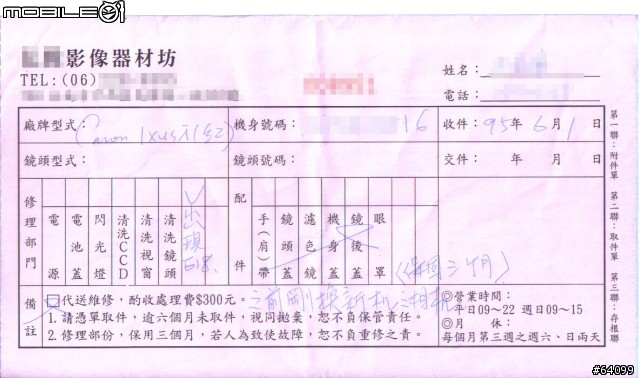 mobile01
影像器材坊
TEL:(06)
姓名：
電話：
廠牌型式： Canon IXUS i (紅)
機身號碼： 16
收件： 95年 6月 1日
鏡頭型式：
鏡頭號碼：
交件： 年 月 日
修理部門
電源
電池蓋
閃光燈
清洗CCD
清洗視窗
清洗鏡頭
出現E18.
配件
手(肩)帶
鏡頭蓋
濾色鏡
機身蓋
鏡後蓋
眼罩
(保固三個月)
備註
□代送維修，酌收處理費$300元。
之前剛換新机
1. 請憑單取件，逾六個月未取件，視同拋棄，恕不負保管責任。
2. 修理部份，保用三個月，若人為致使故障，恕不負重修之責。
◎營業時間：
平日09～22 週日09～15
◎月 休：
每個月第三週之週六、日兩天
第一聯：附件單 第二聯：取件單 第三聯：存根聯
#64099